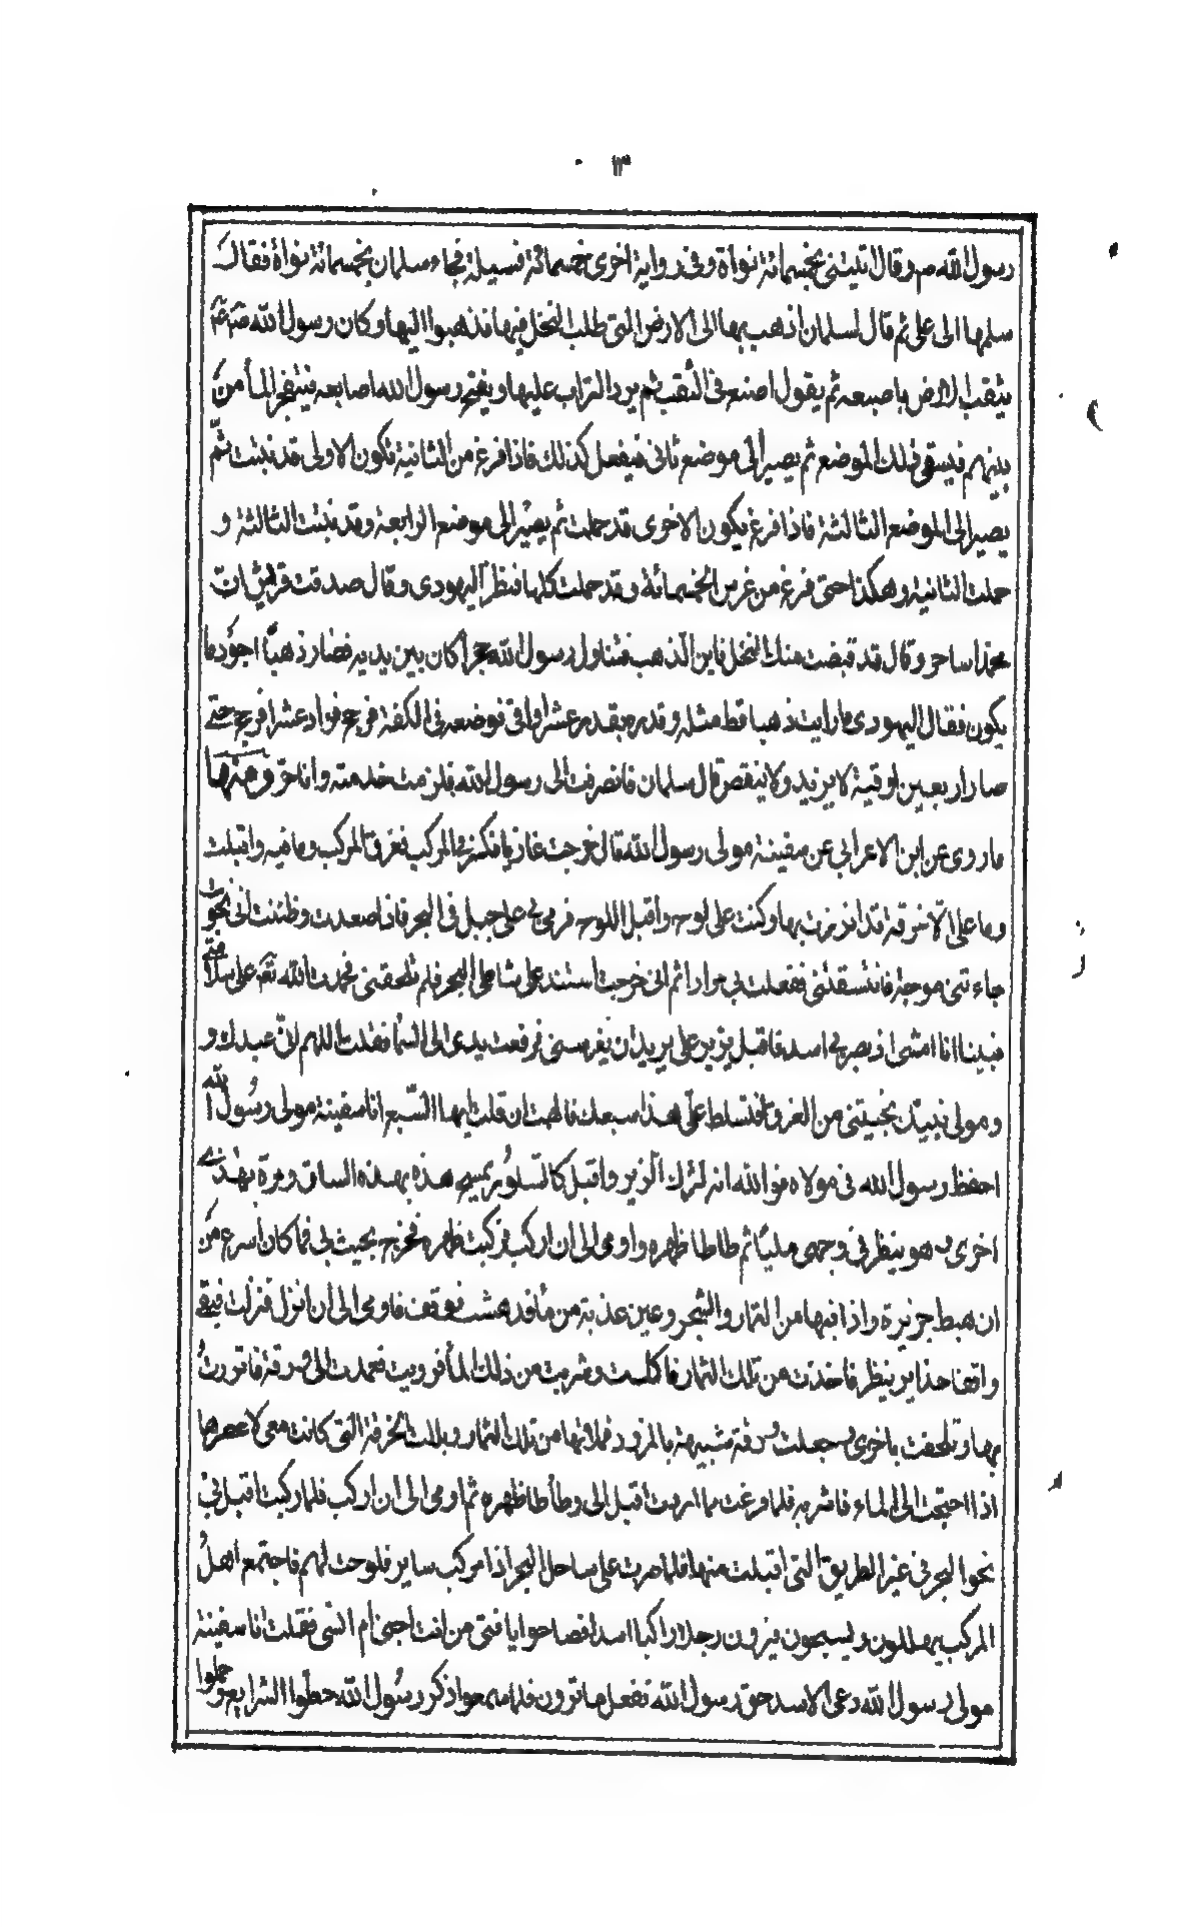 ١٣
رسول الله ص وقال تليتنى بخمسمائة نواة وفى رواية اخرى خمسمائة فسيلة فجاء سلمان بخمسمائة نواة فقال
سلمها الى على ثم قال لسلمان اذهب بها الى الارض التى طلب النخل فيها فذهبوا اليها وكان رسول الله
يثقب الارض باصبعه ثم يقول اصنع فى الثقب ثم يرد التراب عليها ويفتح رسول الله اصابعه فينفجر الماء من
بينهم فيسقى ذلك الموضع ثم يصير الى موضع ثانى فيفعل كذلك فاذا فرغ من الثانية تكون الاولى قد نبتت ثم
يصير الى الموضع الثالثة فاذا فرغ يكون الاخرى قد حملت ثم يصير الى موضع الرابعة وقد نبتت الثالثة و
حملت الثانية وهكذا حتى فرغ من غرس الخمسمائة وقد حملت كلها فنظر اليهودى وقال صدقت قريش ان
محمدا ساحر وقال قد قبضت منك النخل فاين الذهب فتناول رسول الله حجرا كان بين يديه فصار ذهبًا اجود ما
يكون فقال اليهودى ما رايت ذهبا قط مثله وقدره بقدر عشر اواقى فوضعه فى الكفة فرجح فزاد عشرا فرجح حتى
صار اربعين اوقية لا يزيد ولا ينقص قال سلمان فانصرفت الى رسول الله فلزمت خدمته وانا حر ومنها
ما روى عن ابن الاعرابى عن سفينة مولى رسول الله قال خرجت غازيا فكسر بى المركب فغرق المركب وما فيه واقبلت
وما على الا خرقة قد اتزرت بها وكنت على لوح واقبل اللوح فرمى بى على جبل فى البحر فاذا صعدت وظننت انى نجوت
جاءتنى موجة فانتسفتنى ففعلت بى مرارا ثم انى خرجت استند على شاطى البحر فلم تلحقنى فحمدت الله على سلامتى
فبينا انا امشى اذ بصر بى اسد فاقبل يزير على يريد ان يفرسنى فرفعت يدى الى السماء فقلت اللهم انى عبدك و
ومولى نبيك نجيتنى من الغرق افتسلط على هذا سبعك فالهمت ان قلت ايها السبع انا سفينة مولى رسول الله
احفظ رسول الله فى مولاه فوالله انه لترك الزير واقبل كالسنور يمسح هذه بهذه الساق ومرة بهذه
اخرى وهو ينظر فى وجهى مليًا ثم طاطا ظهره واومى الى ان اركب فركبت ظهره فخرج بحيث بى فما كان اسرع من
ان هبط جزيرة واذا فيها من الثمار والشجر وعين عذبة من ماء فدهشت فوقف فاومى الى ان انزل فنزلت فبقى
واقفا حذاى ينظر فاخذت من تلك الثمار فاكلت وشربت من ذلك الماء فرويت فعمدت الى ورقة فاتزرت
بها وتلحفت باخرى وجعلت ورقة شبيهة بالمزود فملاتها من تلك الثمار وبللت الخرقة التى كانت معى لاعصرها
اذا احتجت الى الماء فاشربه فلما فرغت مما اردت اقبل الى وطأطا ظهره ثم اومى الى ان اركب فلما ركبت اقبل بى
نحو البحر فى غير الطريق التى اقبلت منها فلما صرت على ساحل البحر اذا مركب ساير فلوحت لهم فاجتمع اهل
المركب يهللون ويسبحون فيرون رجلا راكبا اسدا فصاحوا يا فتى من انت اجنى ام انسى فقلت انا سفينة
مولى رسول الله رعى الاسد حق رسول الله ففعل ما ترون فلما سمعوا ذكر رسول الله حطوا الشراع وحملوا